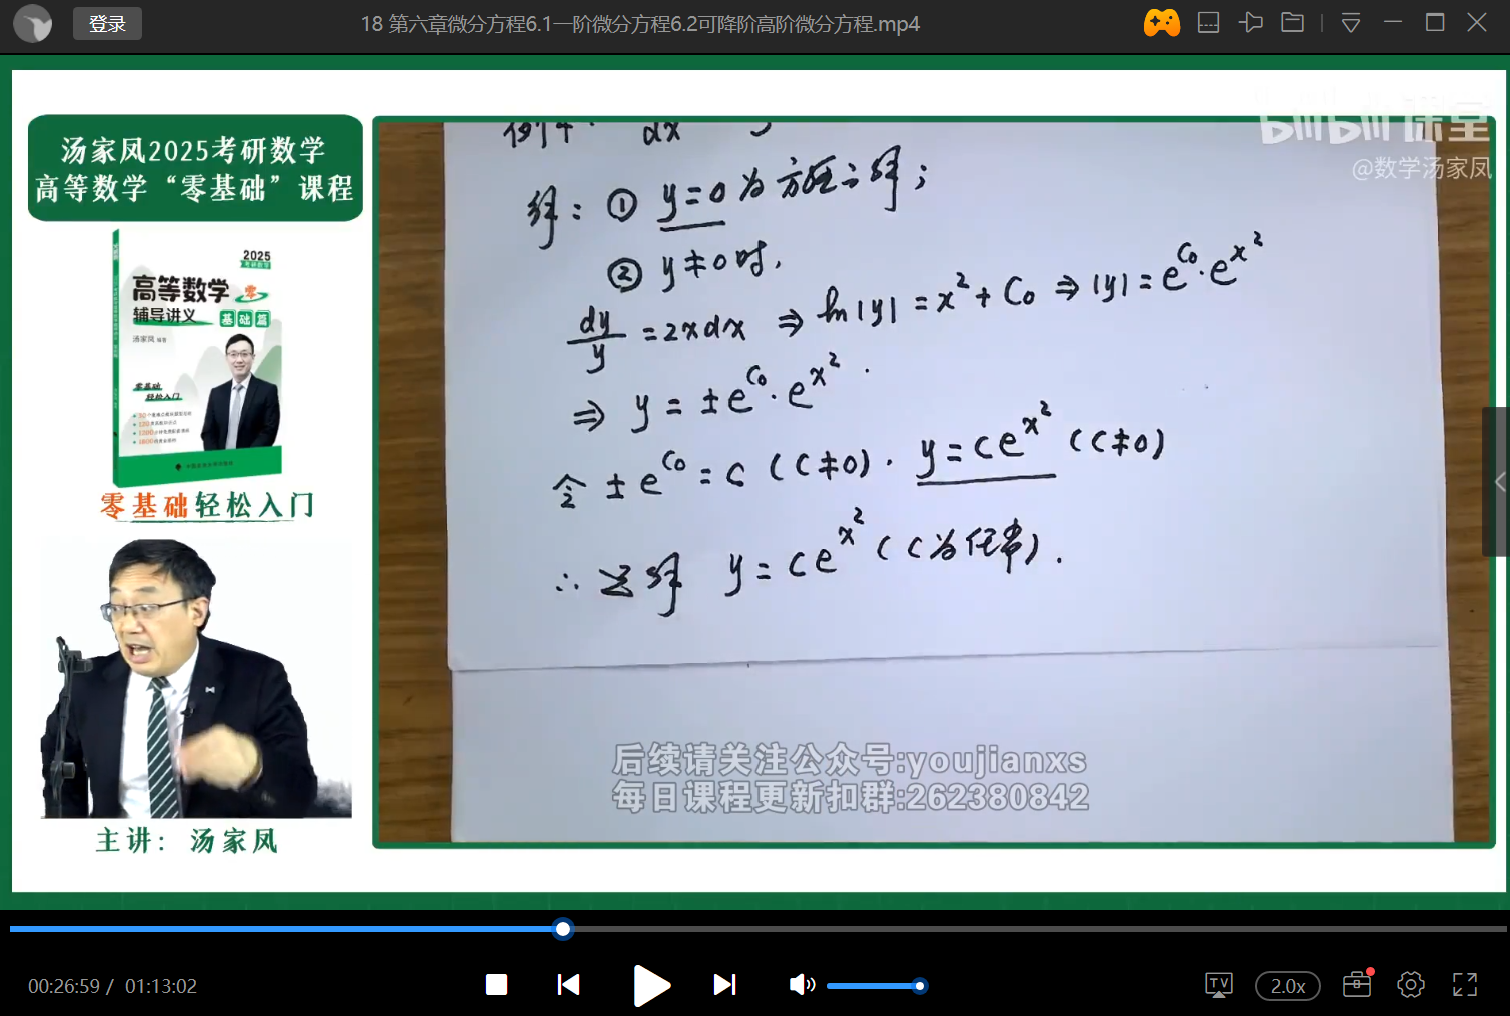 登录
18 第六章微分方程6.1一阶微分方程6.2可降阶高阶微分方程.mp4
汤家凤2025考研数学
高等数学“零基础”课程
2025
高等数学 零
辅导讲义 基础篇
汤家凤 编著
零基础
轻松入门
零基础轻松入门
主讲：汤家凤
bilibili 课堂
@数学汤家凤
例4. dx y
解: ① y=0为方程之解;
② y≠0时,
dy/y = 2xdx ⇒ ln|y| = x² + C₀ ⇒ |y| = e^C₀ · e^x²
⇒ y = ±e^C₀ · e^x².
令 ±e^C₀ = C (C≠0). y = Ce^x² (C≠0)
∴ 通解 y = Ce^x² (C为任常).
后续请关注公众号:youjianxs
每日课程更新扣群:262380842
00:26:59 / 01:13:02
TV
2.0x